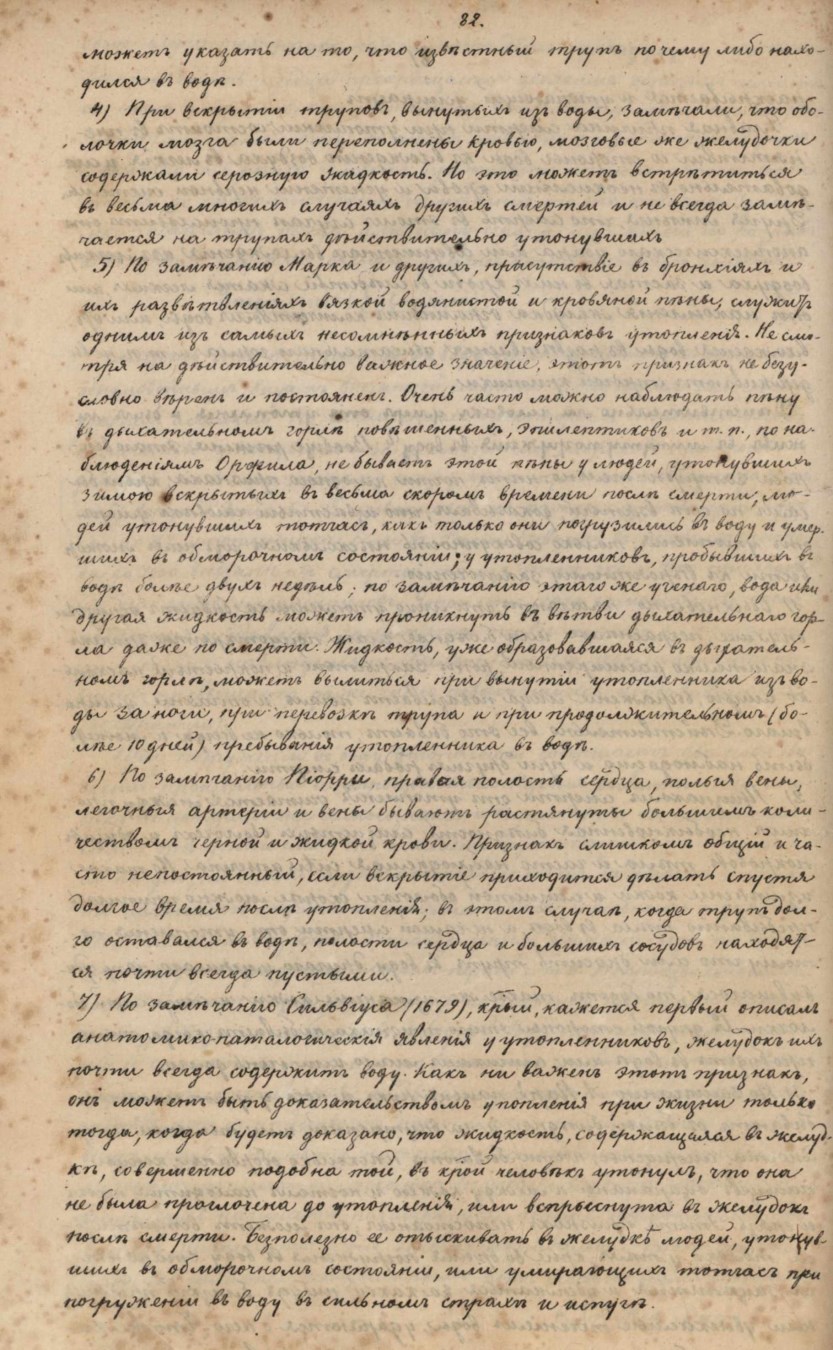 82.
можетъ указать на то, что извѣстный трупъ почему либо нахо-
дился въ водѣ.
4) При вскрытіи труповъ, вынутыхъ изъ воды, замѣчали, что обо-
лочки мозга были переполнены кровью, мозговые же желудочки
содержали серозную жидкость. Но это можетъ встрѣтиться
въ весьма многихъ случаяхъ другихъ смертей и не всегда замѣ-
чается на трупахъ дѣйствительно утонувшихъ
5) По замѣчанію Марка и другихъ, присутствіе въ бронхіяхъ и
ихъ развѣтвленіяхъ вязкой водянистой и кровяной пѣны, служитъ
однимъ изъ самыхъ несомнѣнныхъ признаковъ утопленія. Не смо-
тря на дѣйствительно важное значеніе, этотъ признакъ не безу-
словно вѣренъ и постояненъ. Очень часто можно наблюдать пѣну
въ дыхательномъ горлѣ повѣшенныхъ, эпилептиковъ и т. п., по на-
блюденіямъ Орфила, не бываетъ этой пѣны у людей, утонувшихъ
зимою вскрытыхъ въ весьма скоромъ времени послѣ смерти; лю-
дей утонувшихъ тотчасъ, какъ только они погрузились въ воду и умер-
шихъ въ обморочномъ состояніи; у утопленниковъ, пробывшихъ въ
водѣ болѣе двухъ недѣль; по замѣчанію этаго же ученаго, вода или
другая жидкость можетъ проникнуть въ вѣтви дыхательнаго гор-
ла даже по смерти. Жидкость, уже образовавшаяся въ дыхатель-
номъ горлѣ, можетъ вылиться при вынутіи утопленника изъ во-
ды за ноги, при перевозкѣ трупа и при продолжительномъ (бо-
лѣе 10 дней) пребыванія утопленника въ водѣ.
6) По замѣчанію Піорри, правая полость сердца, полыя вены,
легочныя артеріи и вены бываютъ растянуты большимъ коли-
чествомъ черной и жидкой крови. Признакъ слишкомъ общій и ча-
сто непостоянный, если вскрытіе приходится дѣлать спустя
долгое время послѣ утопленія; въ этомъ случаѣ, когда трупъ дол-
го оставался въ водѣ, полости сердца и большихъ сосудовъ находят-
ся почти всегда пустыми.
7) По замѣчанію Сильвіуса (1679), крый, кажется первый описалъ
анатомико-паталогическія явленія у утопленниковъ, желудокъ ихъ
почти всегда содержитъ воду. Какъ ни важенъ этотъ признакъ,
онъ можетъ быть доказательствомъ утопленія при жизни только
тогда, когда будетъ доказано, что жидкость, содержащаяся въ желуд-
кѣ, совершенно подобна той, въ крой человѣкъ утонулъ, что она
не была проглочена до утопленія, или вспрыснута въ желудокъ
послѣ смерти. Безполезно ее отыскивать въ желудкѣ людей, утонув-
шихъ въ обморочномъ состояніи, или умирающихъ тотчасъ при
погруженіи въ воду въ сильномъ страхѣ и испугѣ.